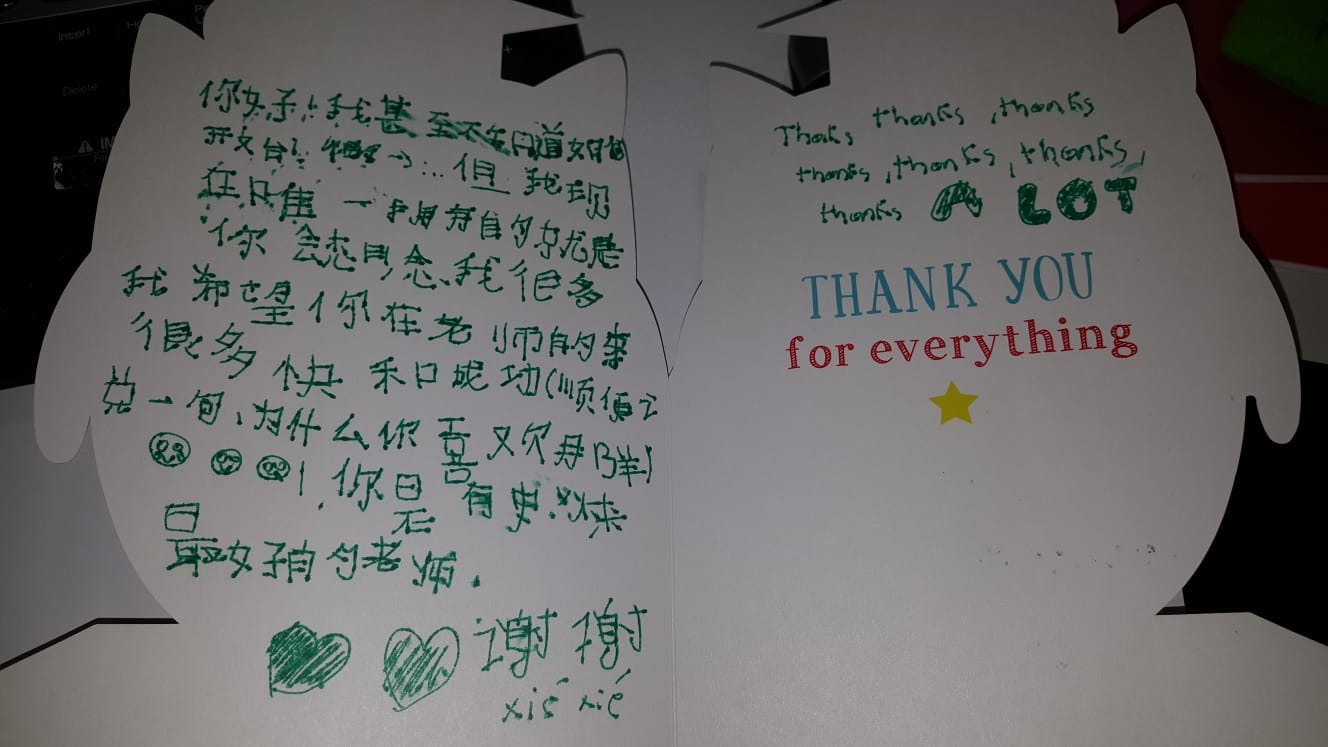 Insert
Delete
你好!我甚至不知道如何
开始 ...但我现
在唯一拥有的就是
你会想念我很多
我希望你在老师的
很多快和成功(顺便
说一句、为什么你喜欢
! 你是有史以来
最好的老师.
谢谢
xié xié
Thanks thanks, thanks
thanks, thanks, thanks,
thanks A LOT
THANK YOU
for everything